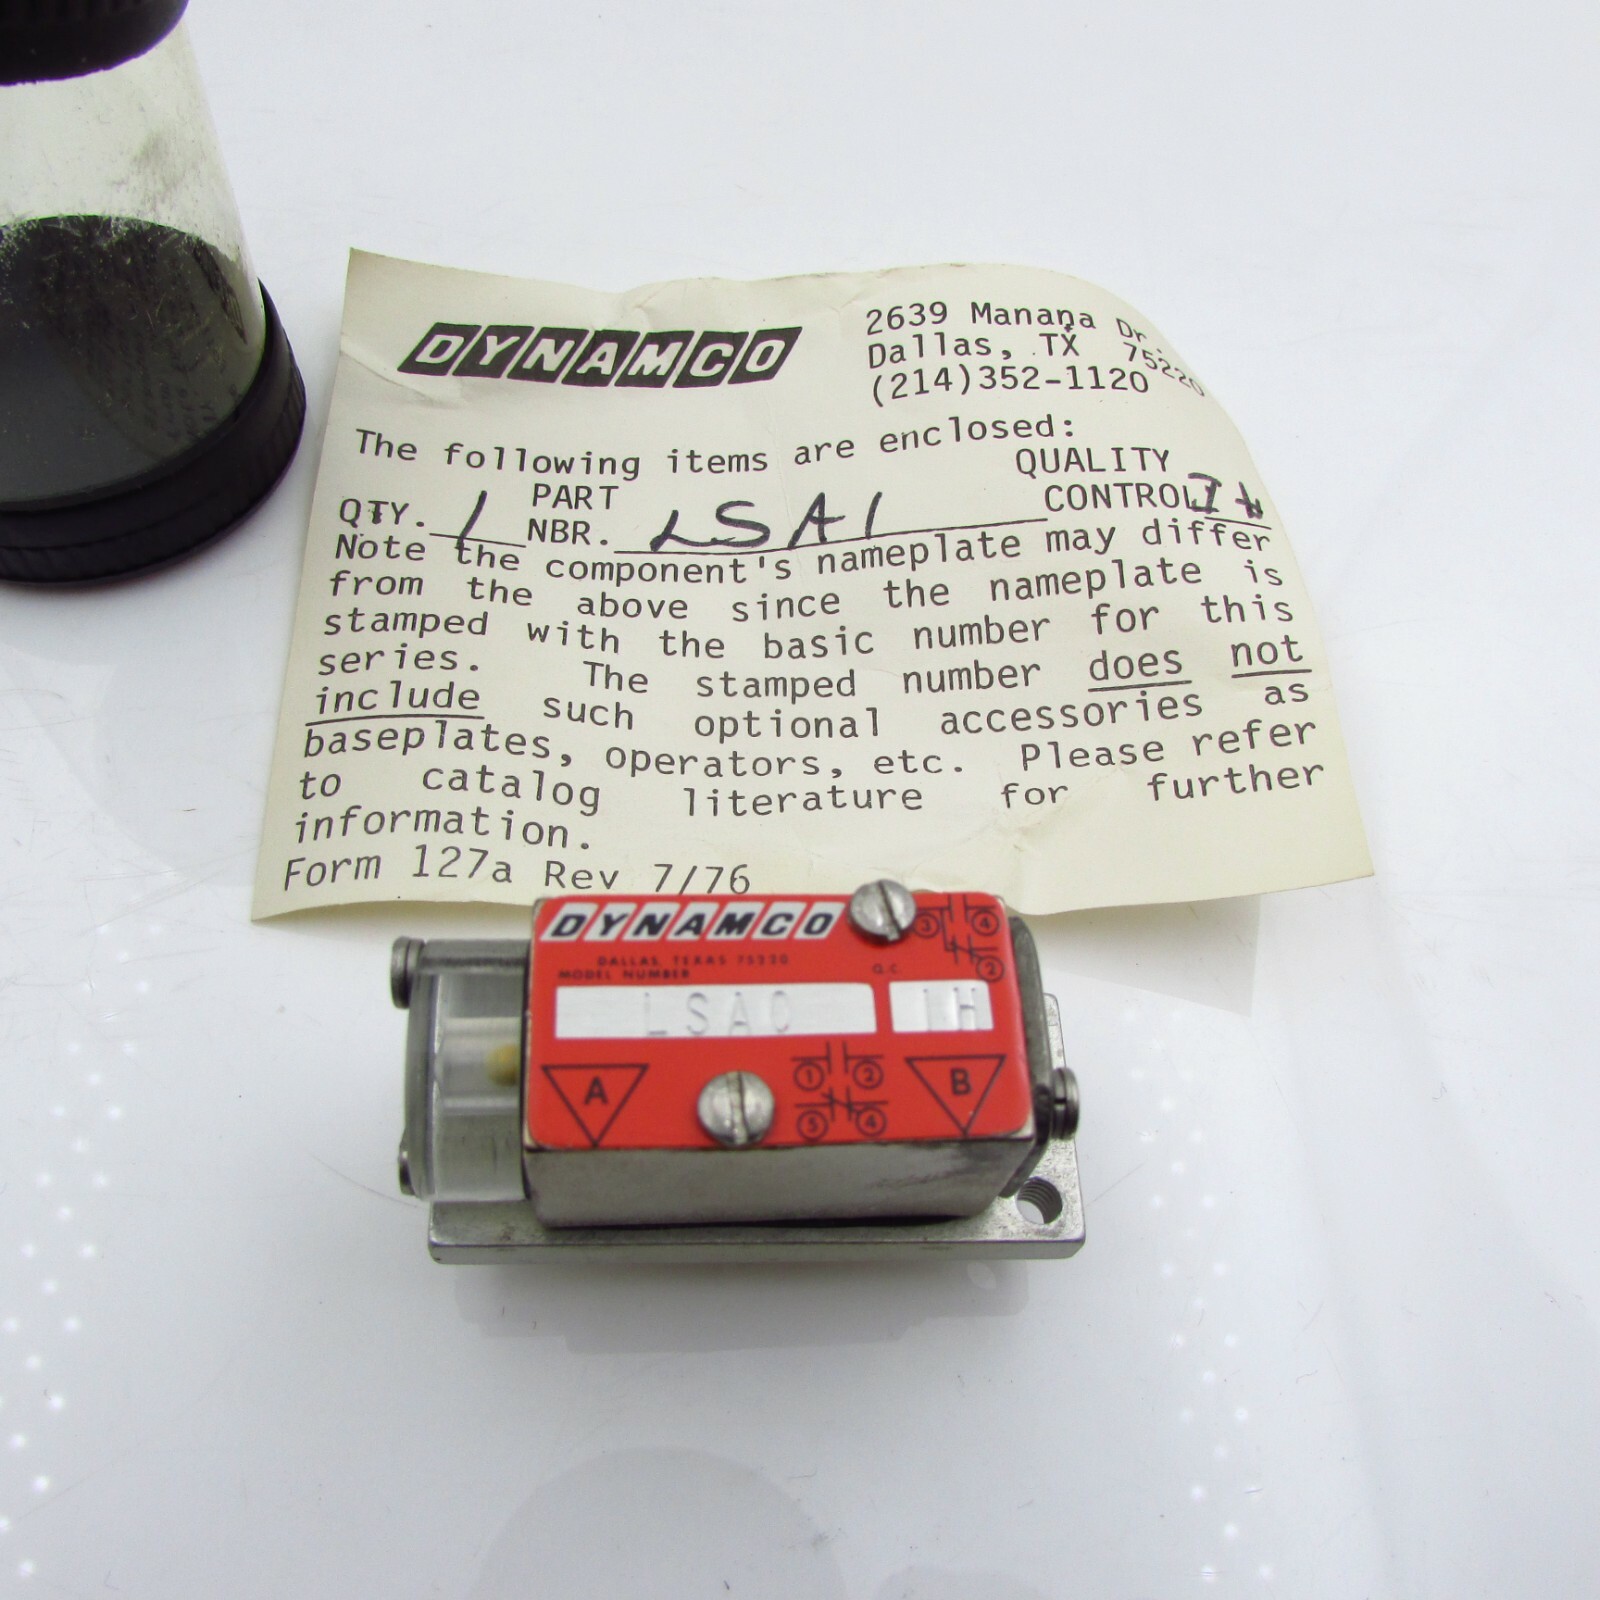 DYNAMCO
2639 Manana Dr.
Dallas, TX 75220
(214)352-1120
The following items are enclosed:
QTY. 1 PART NBR. LSA1 QUALITY CONTROL IH
Note the component's nameplate may differ
from the above since the nameplate is
stamped with the basic number for this
series. The stamped number does not
include such optional accessories as
baseplates, operators, etc. Please refer
to catalog literature for further
information.
Form 127a Rev 7/76
DYNAMCO
DALLAS, TEXAS 75220
MODEL NUMBER Q.C.
LSAO IH
3 4
2
A 1 2 B
5 4